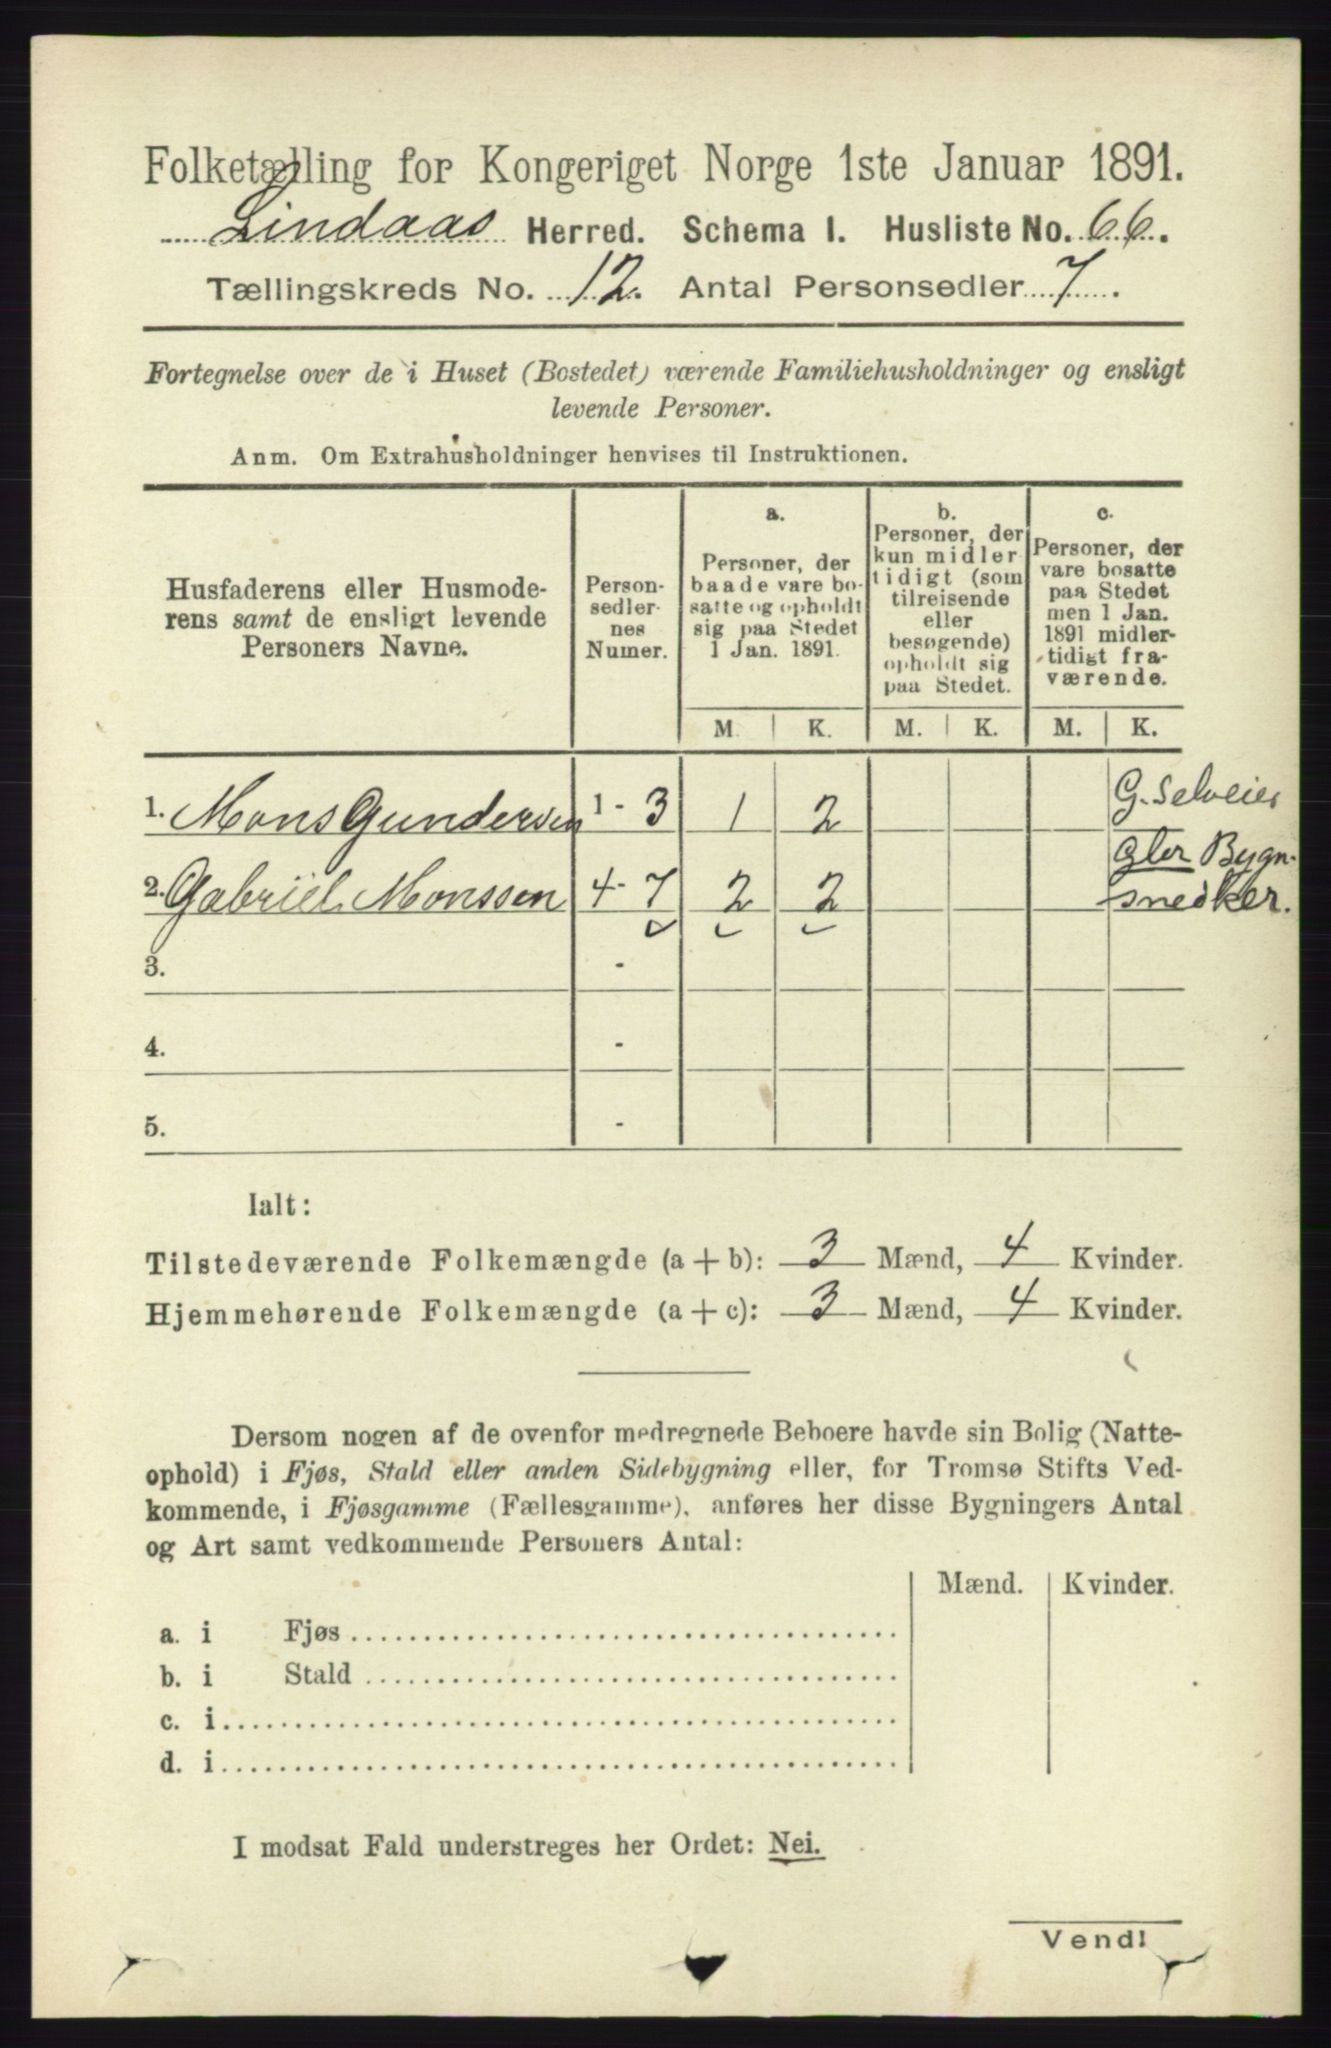 Folketælling for Kongeriget Norge 1ste Januar 1891.
Lindaas Herred. Schema I. Husliste No. 66.
Tællingskreds No. 12. Antal Personsedler 7.
Fortegnelse over de i Huset (Bostedet) værende Familiehusholdninger og ensligt
levende Personer.
Anm. Om Extrahusholdninger henvises til Instruktionen.
Husfaderens eller Husmode-
rens samt de ensligt levende
Personers Navne.
Person-
sedler-
nes
Numer.
a.
Personer, der
baade vare bo-
satte og opholdt
sig paa Stedet
1 Jan. 1891.
b.
Personer, der
kun midler
tidigt (som
tilreisende
eller
besøgende)
opholdt sig
paa Stedet.
c.
Personer, der
vare bosatte
paa Stedet
men 1 Jan.
1891 midler-
tidigt fra-
værende.
M. K. M. K. M. K.
1. Mons Gundersen 1 - 3 1 2 G. Selveier
2. Gabriel Monssen 4 - 7 2 2 Bygn-
snedker.
3. -
4. -
5. -
Ialt:
Tilstedeværende Folkemængde (a + b): 3 Mænd, 4 Kvinder.
Hjemmehørende Folkemængde (a + c): 3 Mænd, 4 Kvinder.
Dersom nogen af de ovenfor medregnede Beboere havde sin Bolig (Natte-
ophold) i Fjøs, Stald eller anden Sidebygning eller, for Tromsø Stifts Ved-
kommende, i Fjøsgamme (Fællesgamme), anføres her disse Bygningers Antal
og Art samt vedkommende Personers Antal:
Mænd. Kvinder.
a. i Fjøs
b. i Stald
c. i
d. i
I modsat Fald understreges her Ordet: Nei.
Vend!